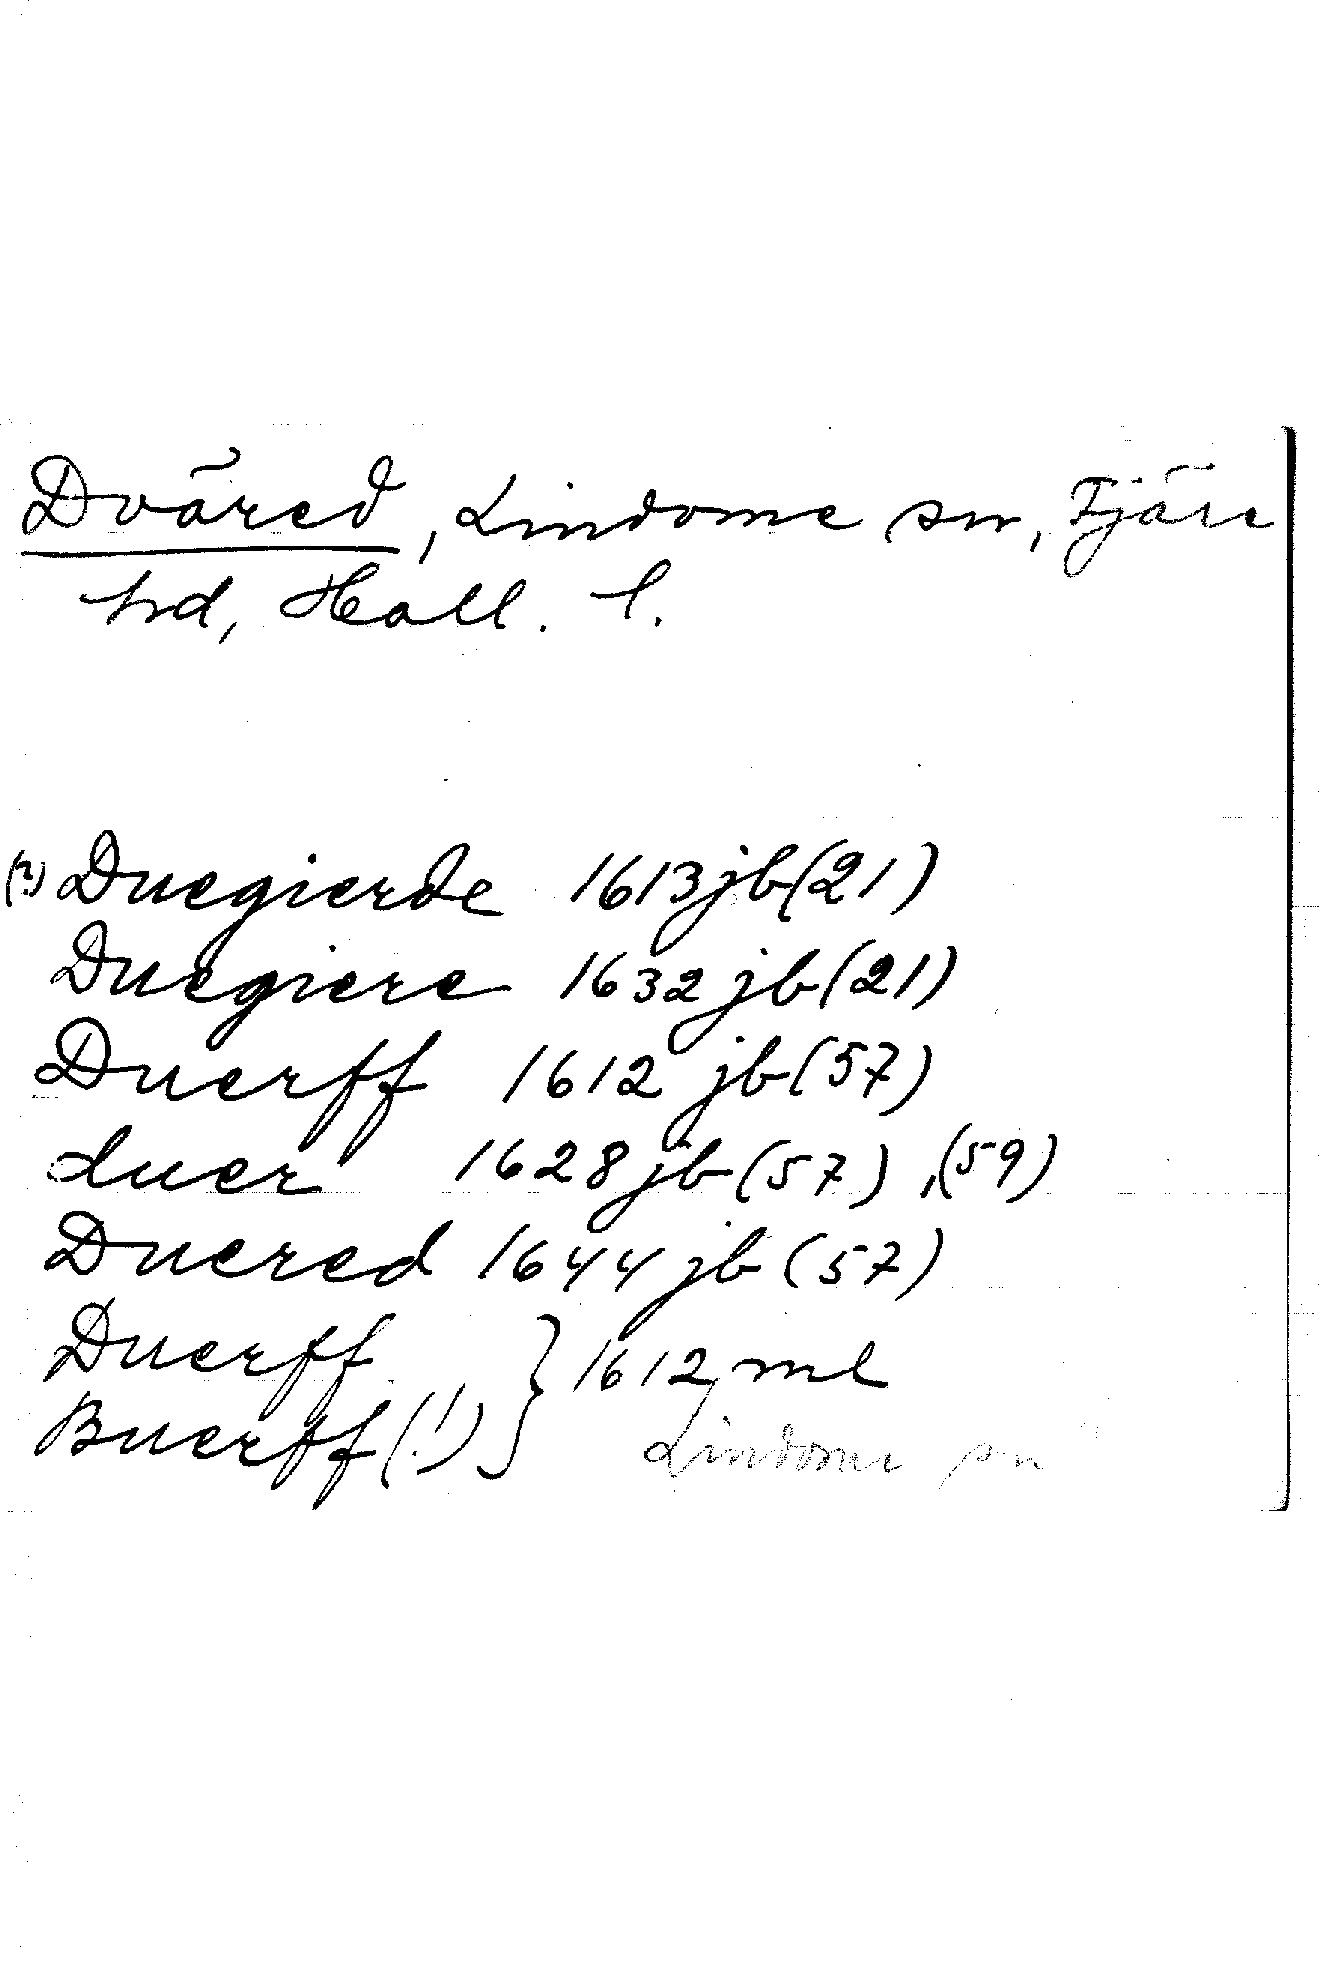 Dväred, Lindome sn, Fjäre
hd, Hall. l.
(?) Duegierde 1613 jb (21)
Duegiere 1632 jb (21)
Duerff 1612 jb (57)
duer 1628 jb (57), (59)
Duered 1644 jb (57)
Duerff } 1612 ml
Buerff (!)
Lindome sn